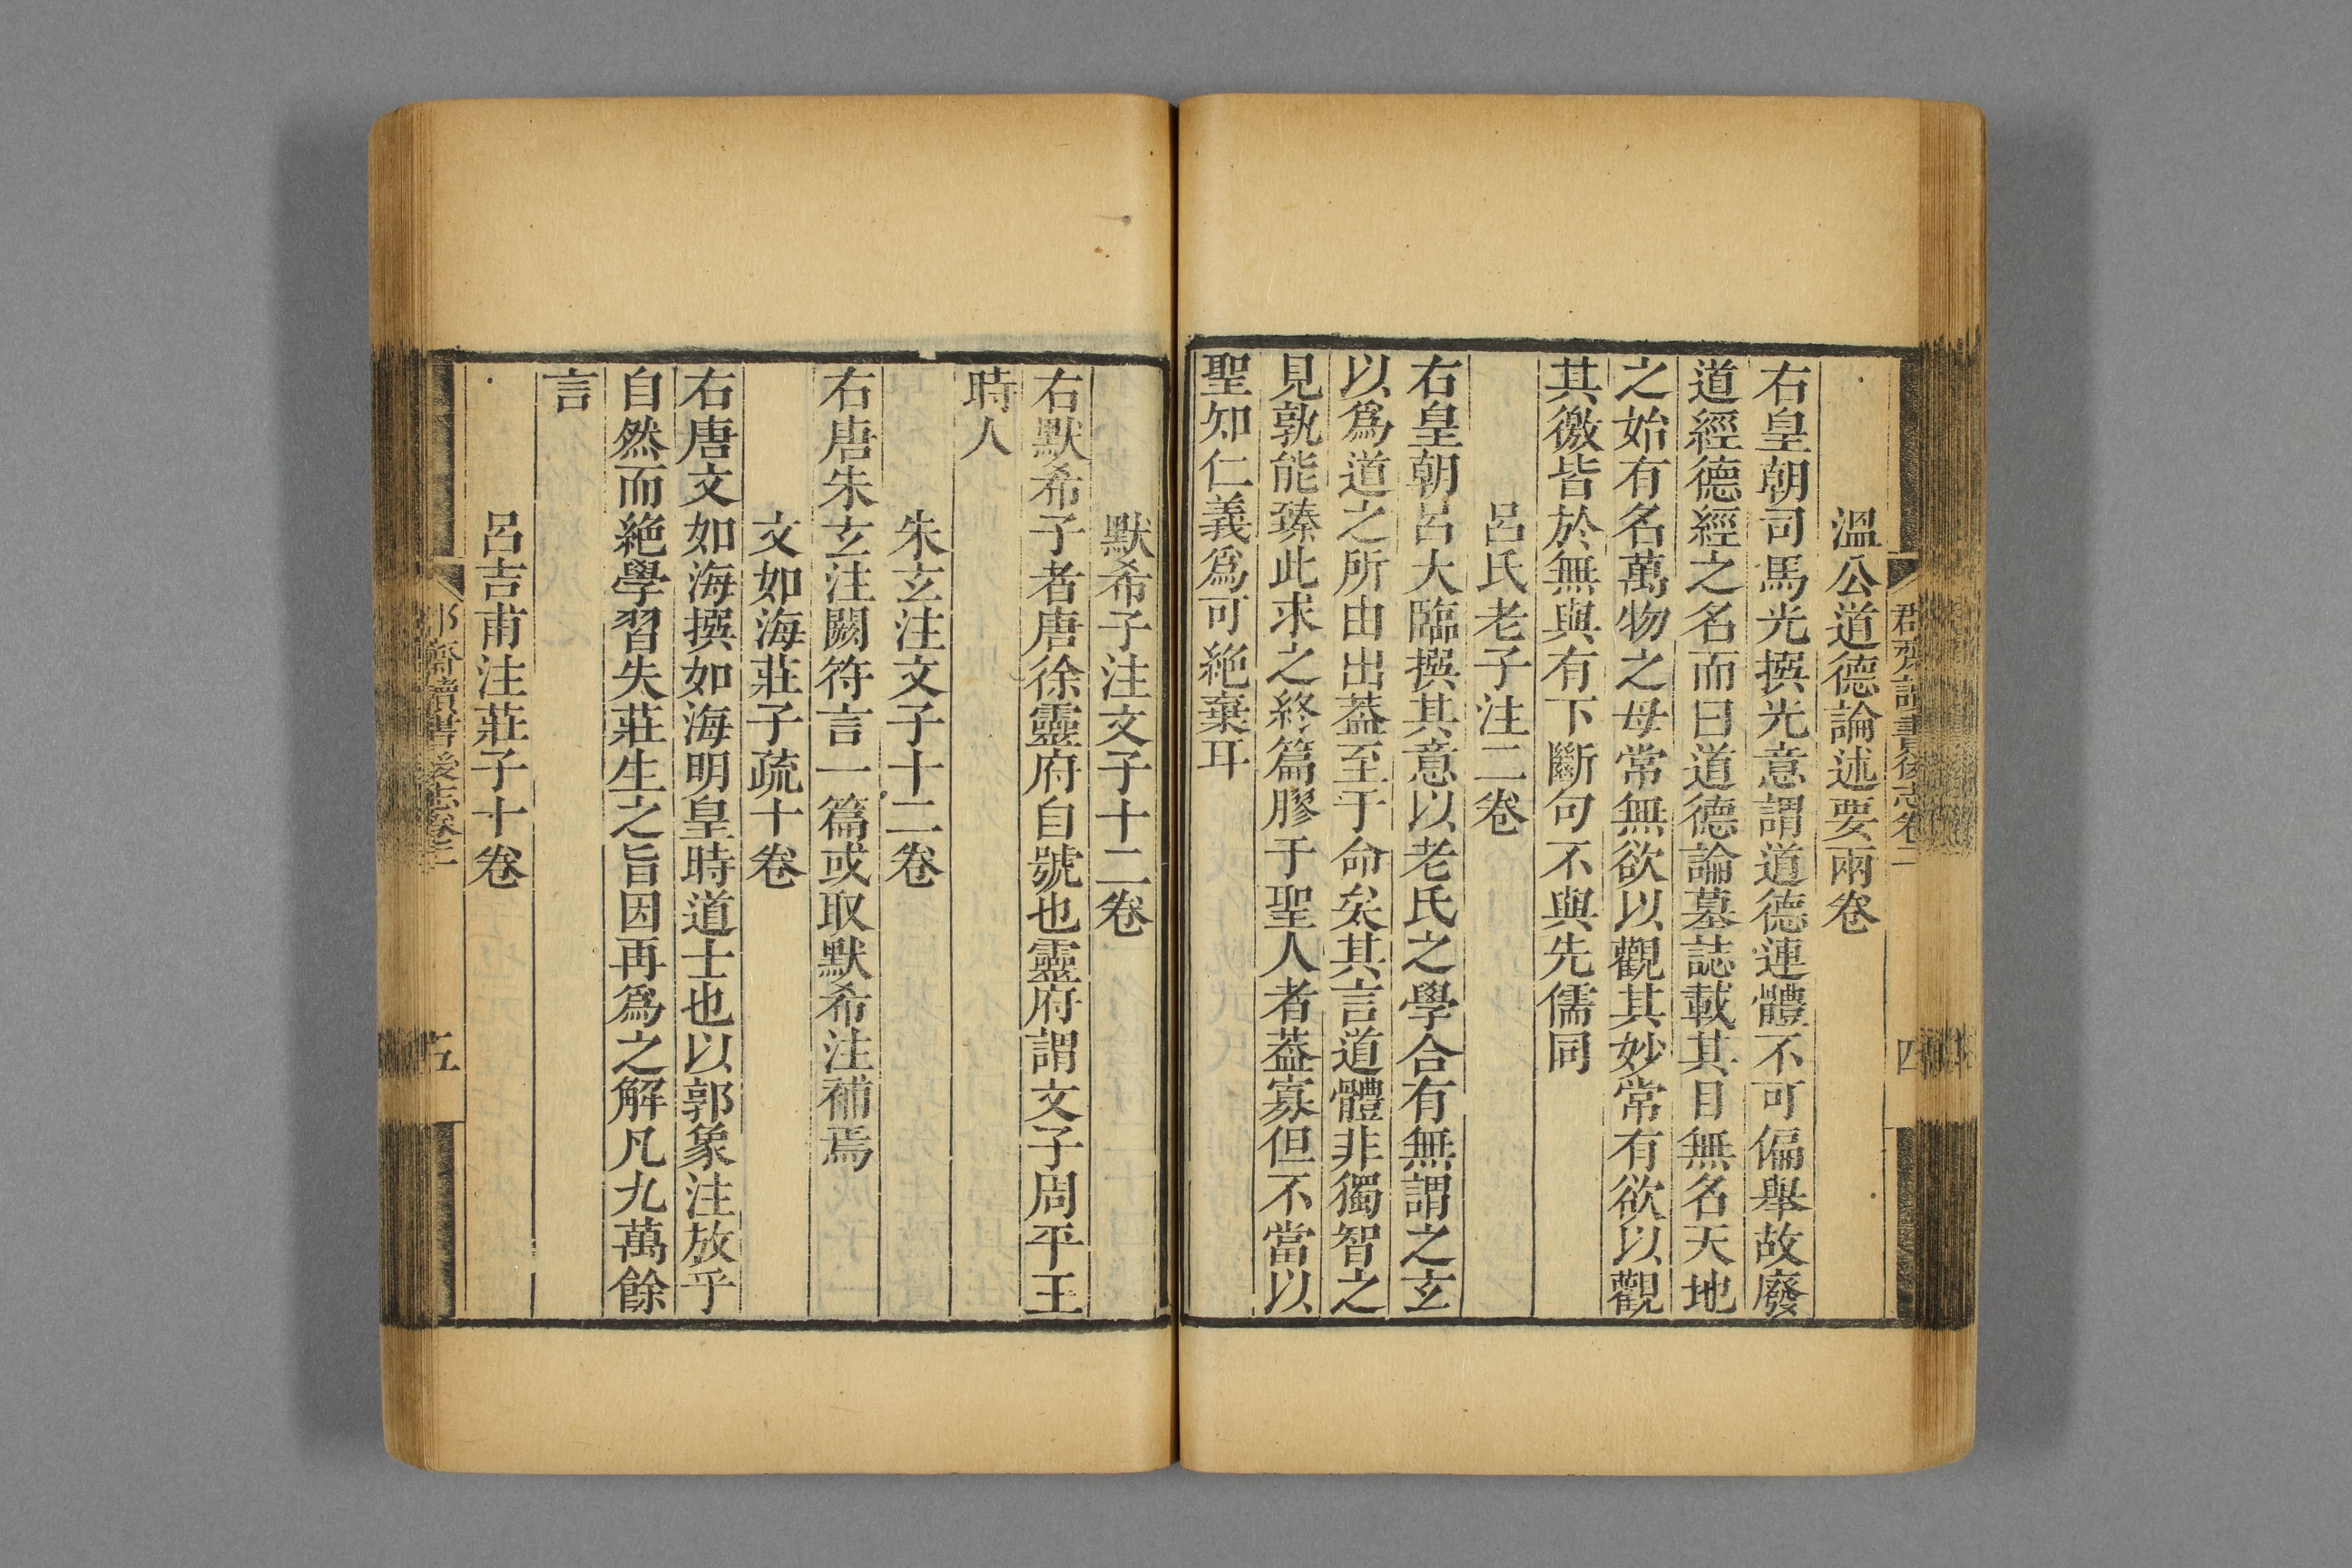 溫公道德論述要兩卷
右皇朝司馬光撰光意謂道德連體不可偏舉故廢
道經德經之名而曰道德論墓誌載其目無名天地
之始有名萬物之母常無欲以觀其妙常有欲以觀
其徼皆於無與有下斷句不與先儒同
呂氏老子注二卷
右皇朝呂大臨撰其意以老氏之學合有無謂之玄
以爲道之所由出葢至于命矣其言道體非獨智之
見孰能臻此求之終篇膠于聖人者葢寡但不當以
聖知仁義爲可絶棄耳
四
默希子注文子十二卷
右默希子者唐徐靈府自號也靈府謂文子周平王
時人
朱玄注文子十二卷
右唐朱玄注闕符言一篇或取默希注補焉
文如海莊子疏十卷
右唐文如海撰如海明皇時道士也以郭象注放乎
自然而絶學習失莊生之旨因再爲之解凡九萬餘
言
呂吉甫注莊子十卷
五